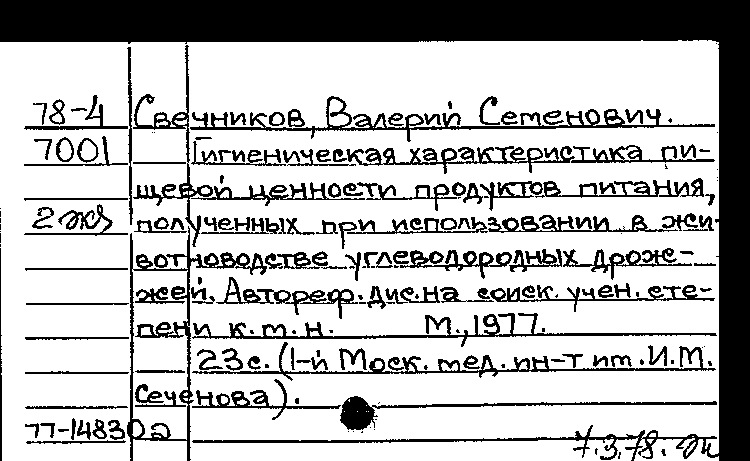 78-4 Свечников, Валерий Семенович.
7001 Гигиеническая характеристика пи-
щевой ценности продуктов питания,
2 экз полученных при использовании в жи-
вотноводстве углеводородных дрож-
жей. Автореф. дис. на соиск. учен. сте-
пени к.м.н. М., 1977.
23с. (1-й Моск. мед. ин-т им. И.М.
Сеченова).
77-14830
7.3.78.